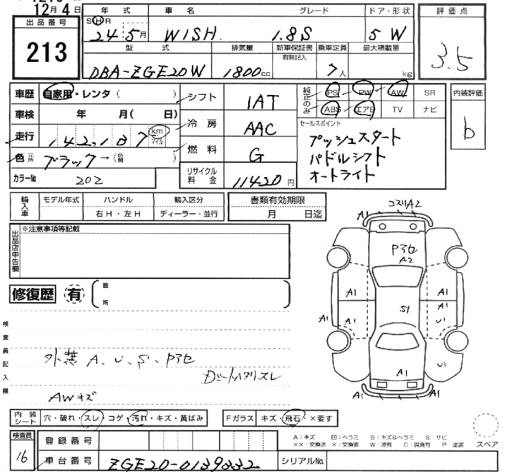 12月4日
出品番号
213
年式 車名 グレード ドア・形状
SⒽR
24年5月 WISH 1.8S 5 W
型式 排気量 新車保証書 有無記入 乗車定員 最大積載量
DBA-ZGE20W 1800cc 7人 kg
評価点
3.5
車歴 自家用・レンタ( )
車検 年 月( 日)
走行 142,187 km マイル
色 ブラック→( )
カラーNo 202
シフト IAT
冷房 AAC
燃料 G
リサイクル料金 11420円
純正のみ PS PW AW SR
ABS エアB TV ナビ
セールスポイント
プッシュスタート
パドルシフト
オートライト
内装評価
b
輸入車 モデル年式 ハンドル 輸入区分
年 右H・左H ディーラー・並行
書類有効期限
月 日迄
出品店申告欄
※注意事項等記載
修復歴 有 箇所
検査員記入欄
外装 A、U、S、P3セ
AWキズ
コスリA2
A1 A1
P3セ
A2
A1 A1
S1
A1 U1
A1 U1
A1 A1
内装シート 穴・破れ・スレ コゲ・汚れ・キズ・黄ばみ
Fガラス キズ・飛石・×要す
検査員
16
登録番号
車台番号 ZGE20-0139332
シリアルNo.
A：キズ U：ヘコミ B：キズ&ヘコミ S：サビ
××：交換済 ×：要交換 W：波有 C：腐食有 P：塗装
スペア